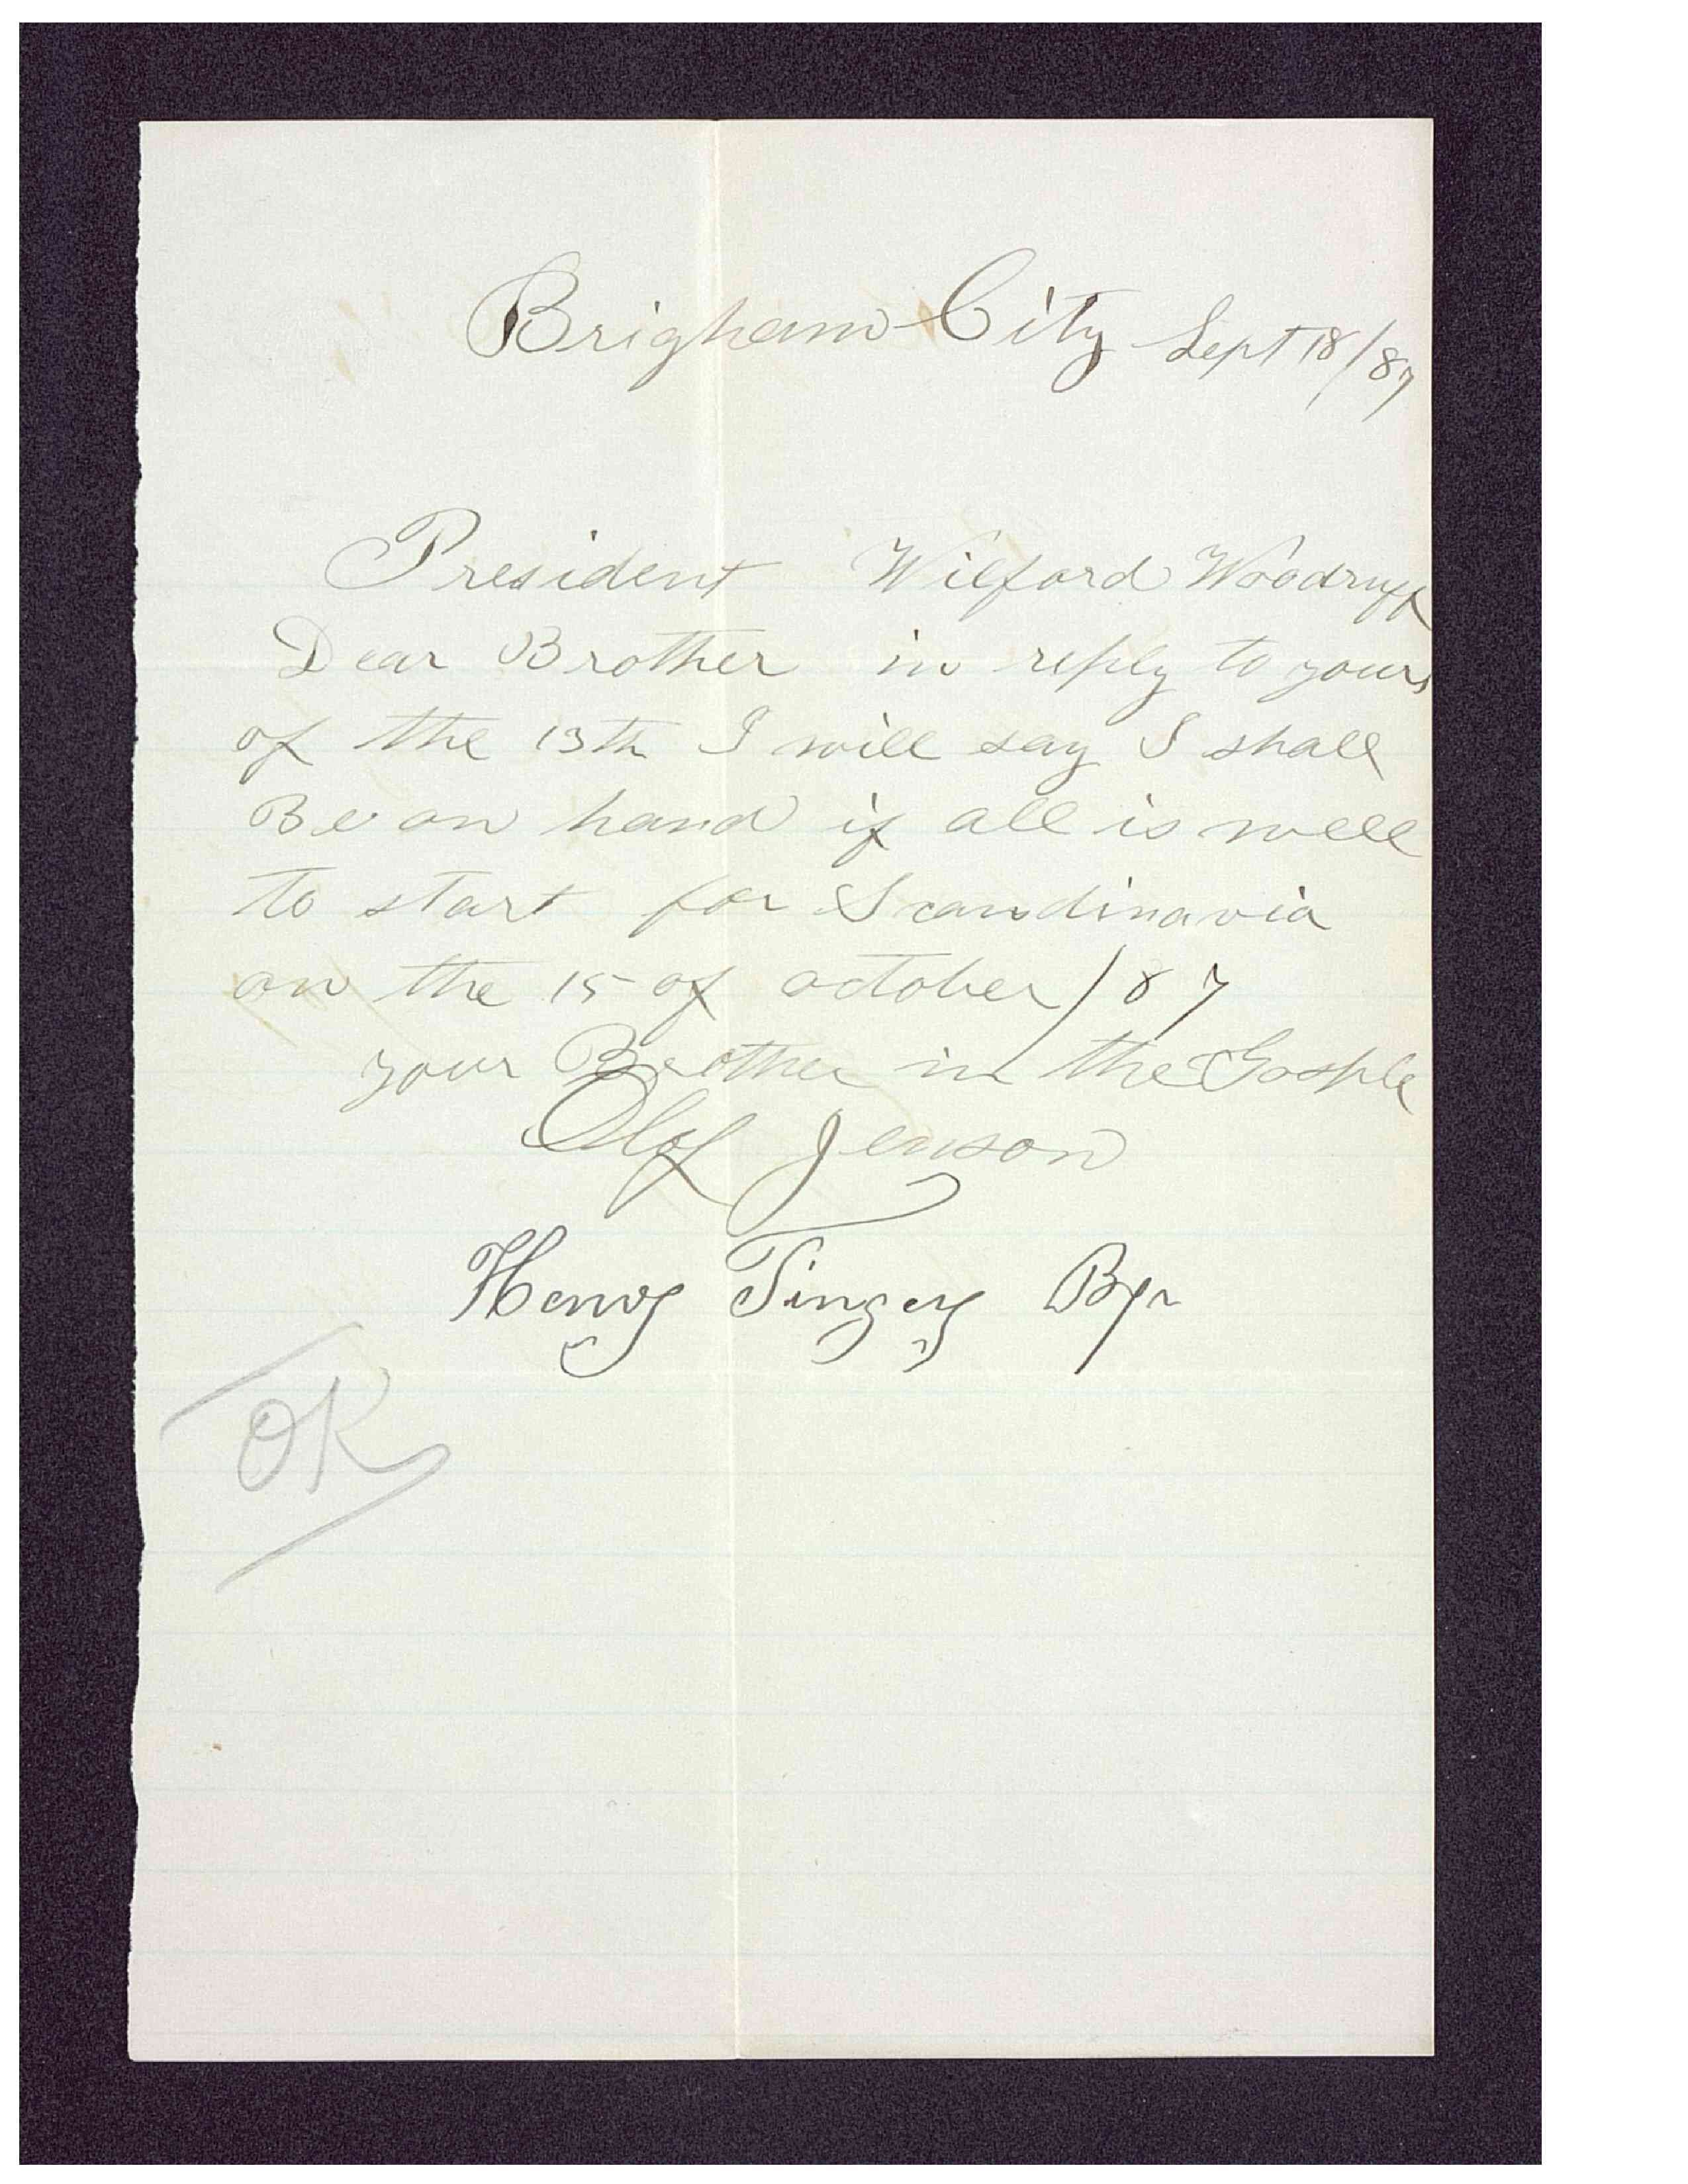 Brigham City Sept 18/87
President Wilford Woodruff
Dear Brother in reply to yours
of the 13th I will say I shall
Be on hand if all is well
to start for Scandinavia
on the 15 of october/87
your Brother in the Gosple
Olof Jenson
Henry Tingey Bp
OK